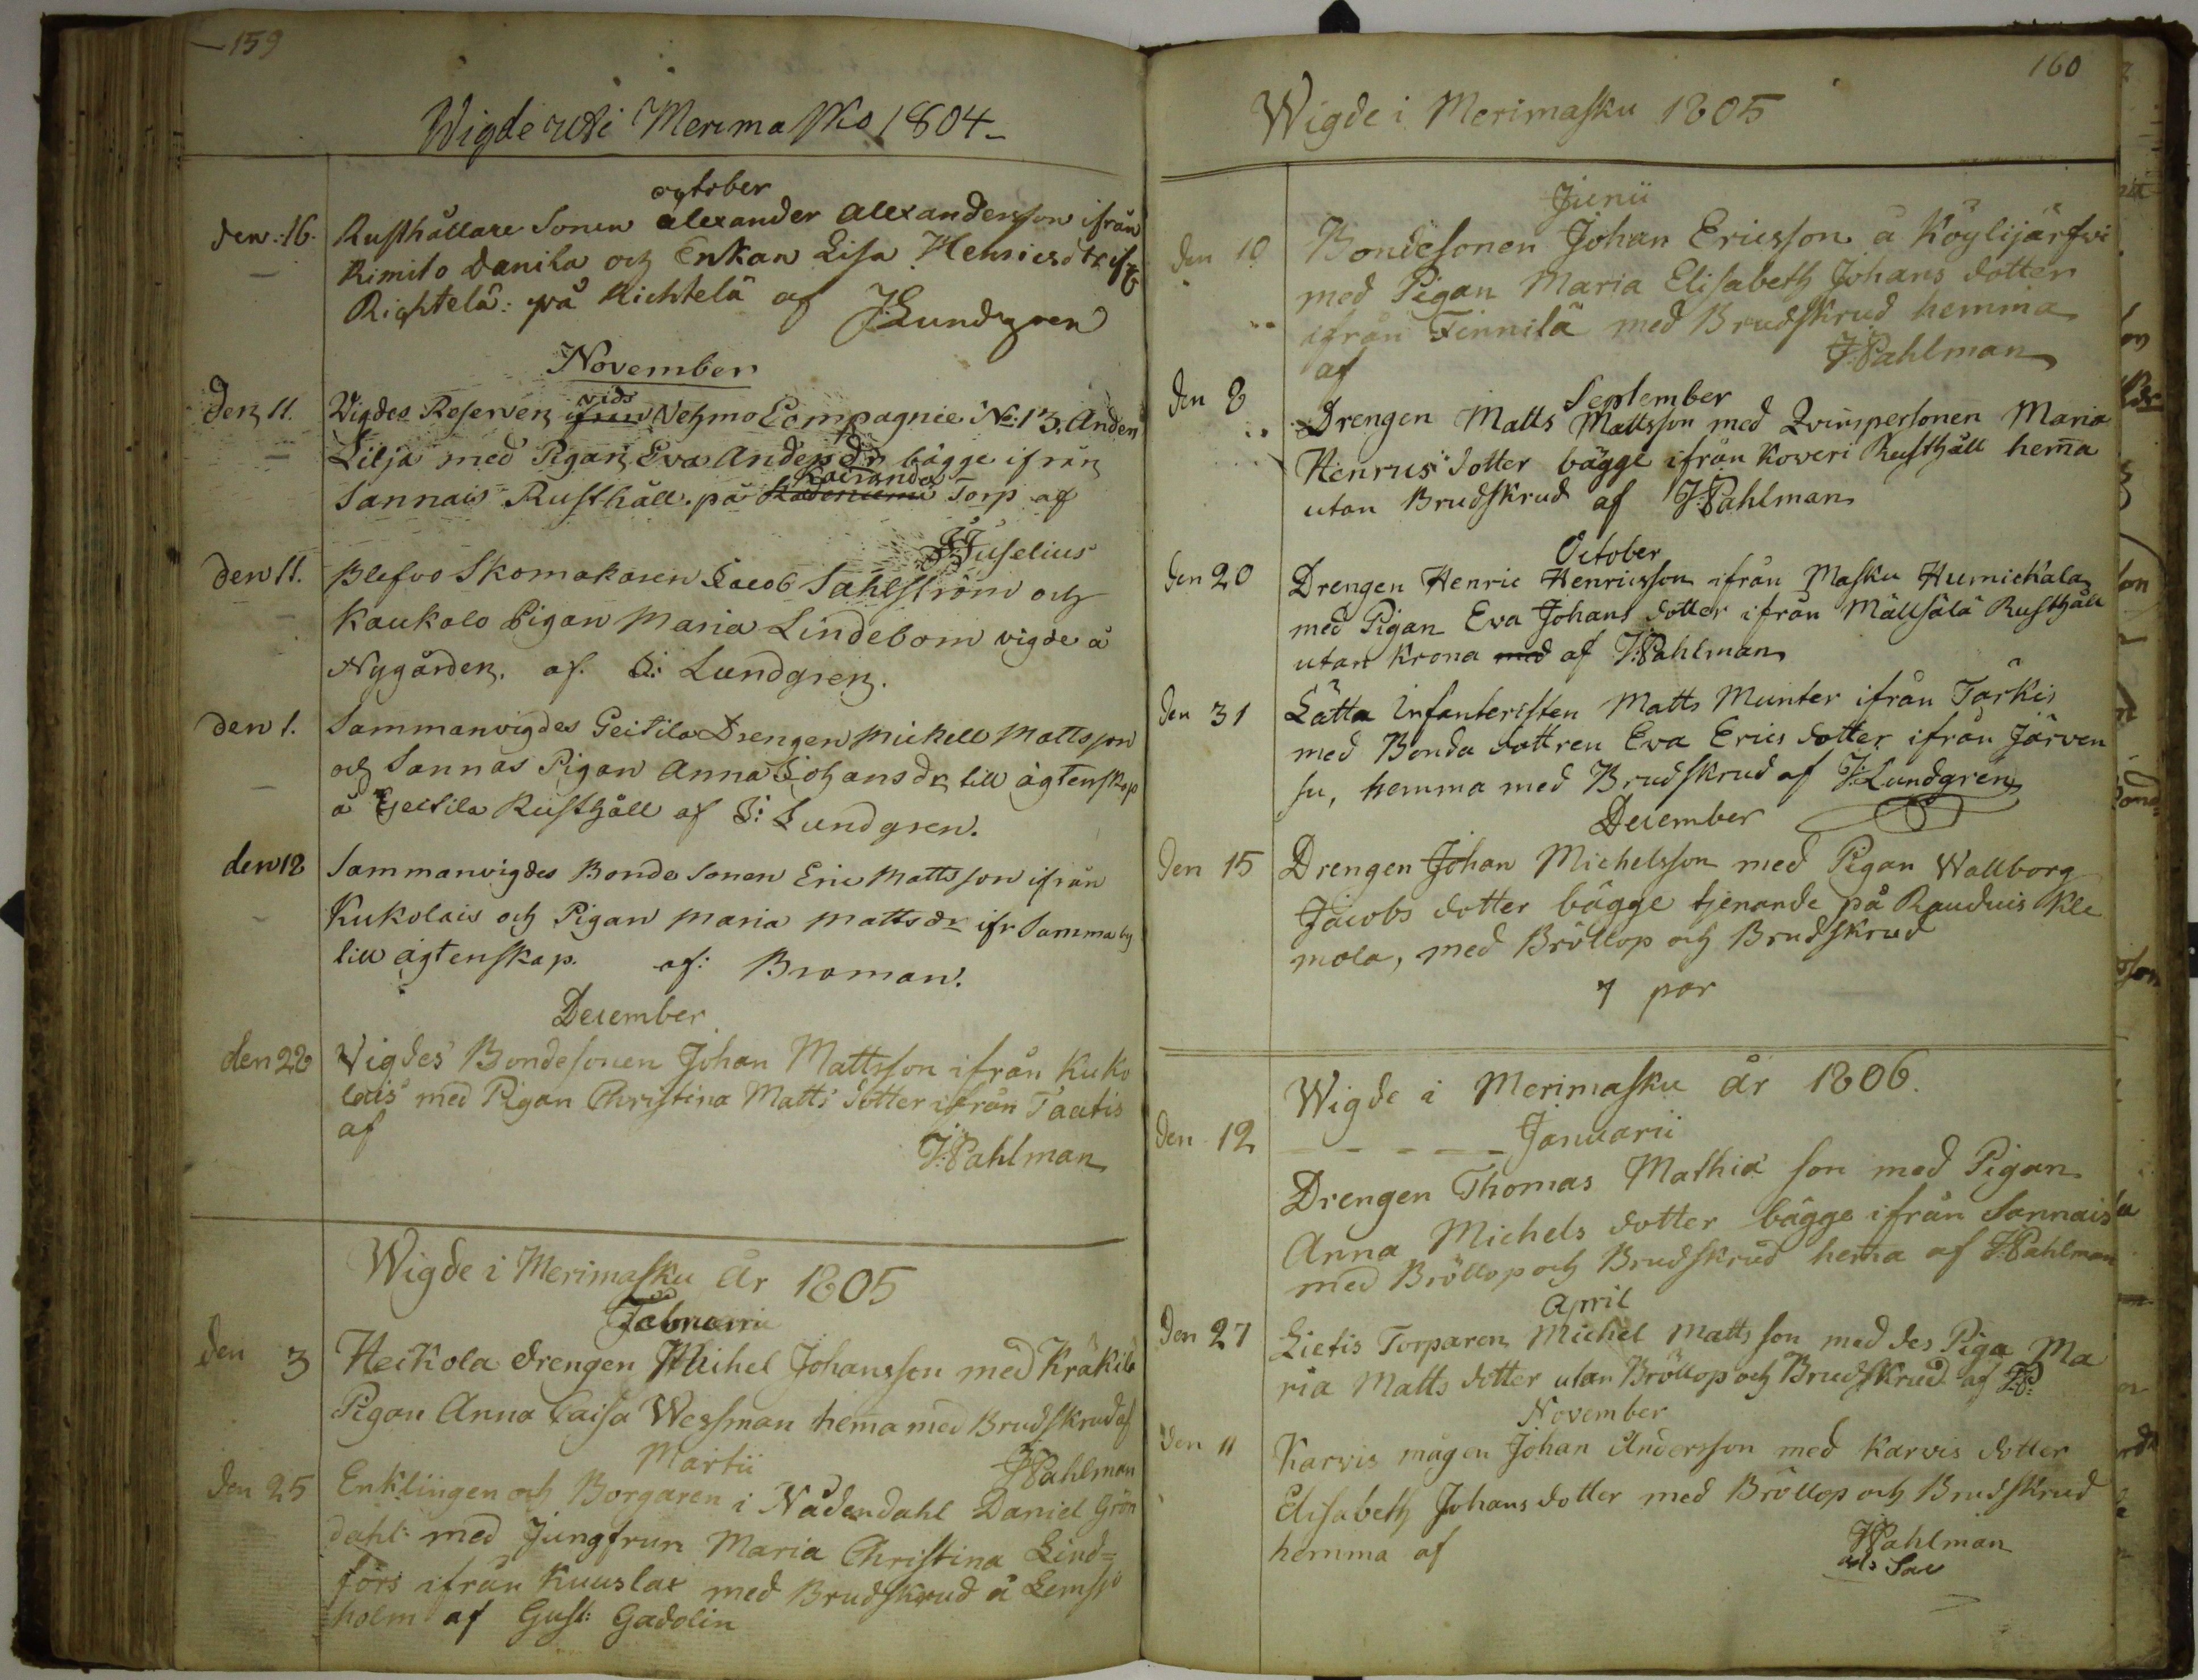 159
Wigde uti Merimasko 1804
october
den 16. Rusthållare Sonen alexander alexandersson ifrån
Kimito Danila och Enkan Lisa Henricsdtr ifr
Richtelä: på Richtelä af J: Lundgren
November
den 11. Vigdes Reserven vid Vehmo Compagnie No: 13, Anders
Lilja med Pigan Eva Andersdr bägge ifrån
Sannais Rusthåll. på Torp af
Juselius
den 11. Blefvo Skomakaren Jacob Sahlström och
Kaukola Pigan Maria Lindebom vigde å
Nygården. af. J: Lundgren.
den 1. Sammanvigdes Geitila Drengen Mickell Mattsson
och Sannas Pigan Anna Johansdr till ägtenskap
å Geitila Rusthåll af J: Lundgren.
den 18 Sammanvigdes Bonde Sonen Eric Mattsson ifrån
Kukolais och Pigan Maria Mattsdr ifr Samma by
till ägtenskap. af: Broman.
December
den 28 Vigdes Bondesonen Johan Mattsson ifrån Kuko
lais med Pigan Christina Matts dotter ifrån Taatis
af
J: Pahlman
Wigde i Merimasku År 1805
Februarii
den 3 Heikola drengen Michel Johansson med Kräkilä
Pigan Anna Caisa Wessman hema med Brudskrud af
Martii J: Pahlman
den 25 Enklingen och Borgaren i Nådendahl Daniel Grön
dahl: med Jungfrun Maria Christina Lind=
fors ifrån Kuuslax med Brudskrud å Lemsjö
holm af Gust: Gadolin
160
Wigde i Merimasku 1805
Junii
den 10 Bondesonen Johan Ericsson å Köylijärfvi
med Pigan Maria Elisabeth Johans dotter
ifrån Finnilä med Brudskrud hemma
af J: Pahlman
September
den 8 Drengen Matts Mattsson med Qvinspersonen Maria
Henrics dotter bägge ifrån Koweri Rusthåll hema
utan Brudskrud af J: Pahlman
October
den 20 Drengen Henric Henricsson ifrån Masku Humickala
med Pigan Eva Johans dotter ifrån Mällsälä Rusthåll
utan Krona med af J: Pahlman
den 31 Lätta Infanteristen Matts Munter ifrån Tarkis
med Bonda dottren Eva Erics dotter ifrån Järven
su, hemma med Brudskrud af J: Lundgren
December
den 15 Drengen Johan Michelsson med Pigan Wallborg
Jacobs dotter bägge tjenande på Rauduis Kle
mola, med Bröllop och Brudskrud
7 par
Wigde i Merimasku år 1806.
den 12 Januarii
Drengen Thomas Mathiæ son med Pigan
Anna Michels dotter bägge ifrån Sannais
med Bröllop och Brudskrud hema af J: Pahlman
April
den 27 Lietis Torparen Michel Matts son med des Piga Ma
ria Matts dotter utan Bröllop och Brudskrud af J: P:
November
den 11 Karvis mågen Johan Andersson med Karvis dotter
Elisabeth Johans dotter med Bröllop och Brudskrud
hemma af J: Pahlman